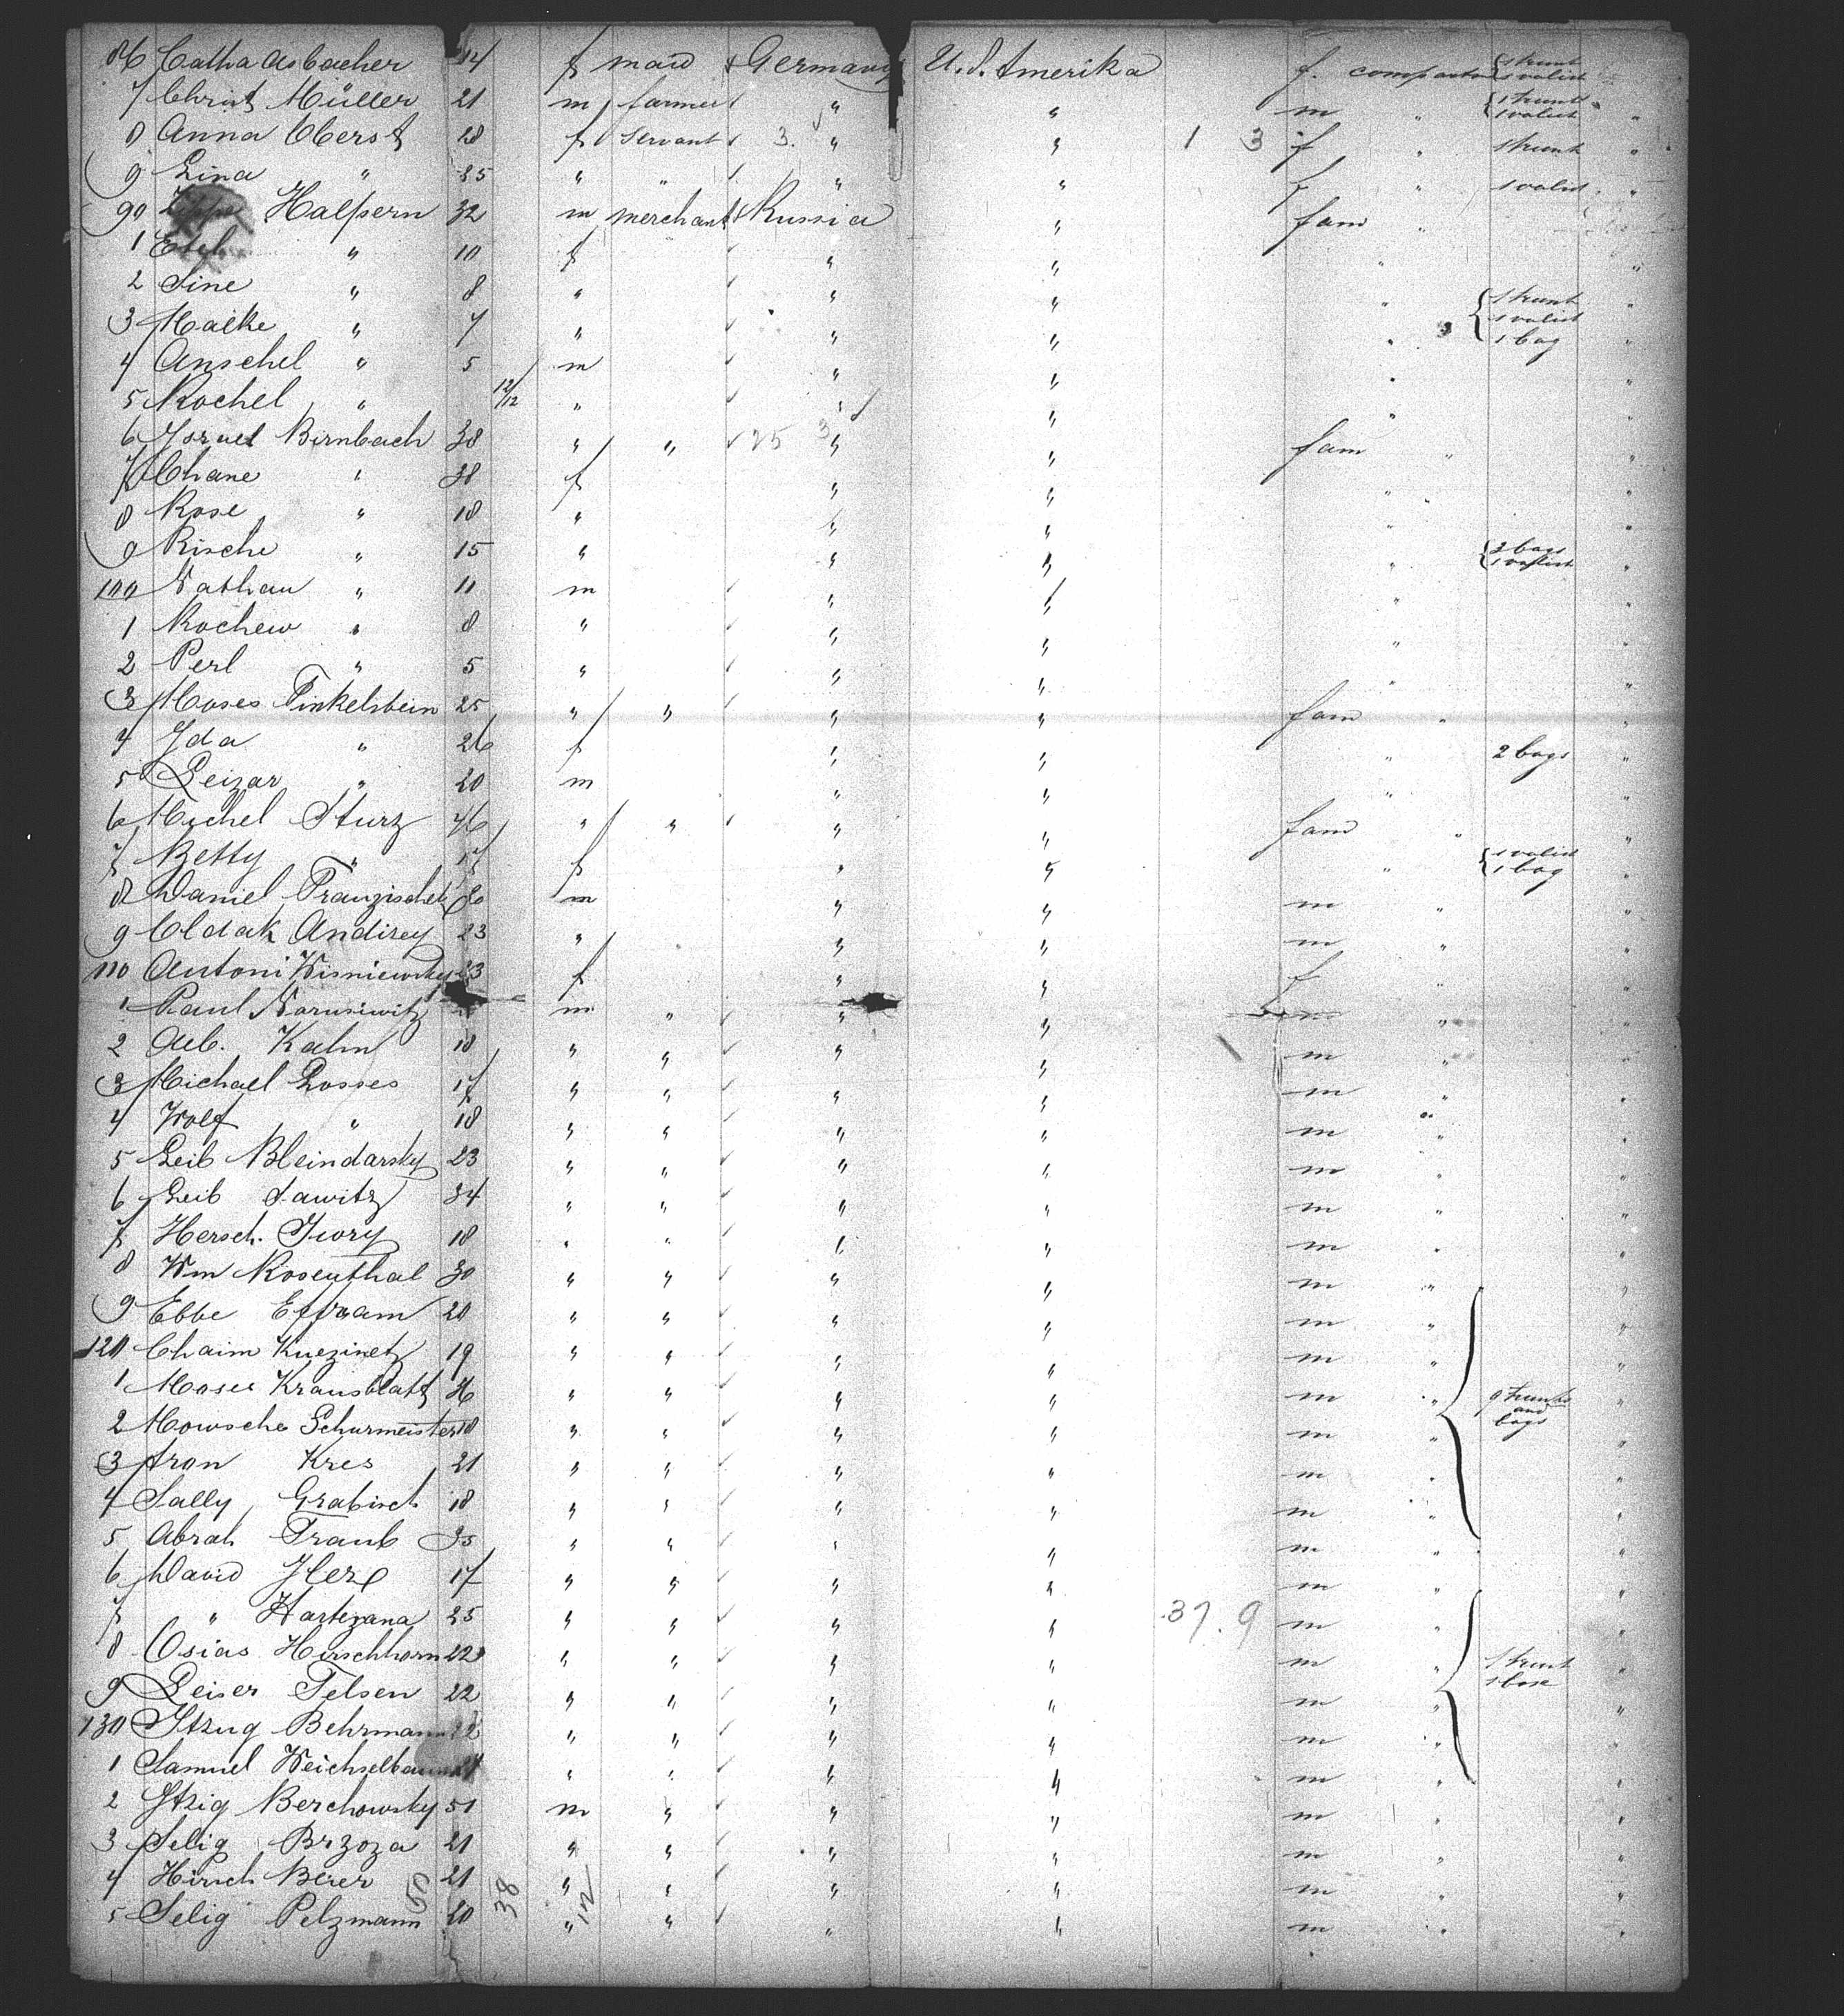 86 Catha Asbacher 14 f maid Germany U. S. Amerika f. 1 trunk 1 valise
7 Christ Müller 21 m farmer " " m " 1 trunk 1 valise "
8 Anna Oberst 28 f servant 3. " " 1 3 f " 1 trunk "
9 Lina " 25 " " " " f " 1 valise "
90 Halpern 32 m merchant Russia " fam "
1 " 10 f " " " "
2 Sine " 8 " " " " "
3 Malke " 7 " " " " 1 trunk 1 valise 1 bag "
4 Anschel " 5 m " " " "
5 Rochel " 12/12 " " " "
6 Israel Birnbach 38 " " 25 3 " " fam " "
7 Chane " 38 f " " " "
8 Rose " 18 " " " " "
9 Rische " 15 " " " " 3 bags 1 valise "
100 Nathan " 11 m " " " "
1 Rochew " 8 " " " "
2 Perl " 5 " " " " "
3 Moses Finkelstein 25 " " " " fam " "
4 Ida " 26 f " " " 2 bags "
5 Leizar " 20 m " " " "
6 Michel Sturz 46 " " " " fam " "
7 Betty " 17 f " " " 1 valise 1 bag "
8 Daniel Franzischek m " " m " "
9 Oldak Andirey 23 " " " m " "
110 Antoni Wisniewsky 23 f " " f "
1 Paul Narusiwitz m " " " m " "
2 Aeb. Kalm 18 " " " " m " "
3 Michael Losses 17 " " " " m " "
4 Wolf " 18 " " " " m " "
5 Leib Bleindarsky 23 " " " " m " "
6 Leib Sawitz 34 " " " " m " "
7 Hersch. Iwory 18 " " " " m " "
8 Wm Rosenthal 30 " " " " m " "
9 Ebbe Effraam 20 " " " " m " "
120 Chaim Kuezinetz 19 " " " " m " "
1 Moses Krausblatt " " " " m " 9 trunks and bags "
2 Mowsche Schurmeister 18 " " " " m " "
3 Aron Kres 21 " " " " m " "
4 Sally Grabisch 18 " " " " m " "
5 Abrah Traub 35 " " " " m " "
6 David Herz 17 " " " " m " "
7 " Hartezana 25 " " " " 37. 9 m " "
8 Osias Hirschhorn 22 " " " " m " 1 trunk 1 box "
9 Leiser Felsen 22 " " " " m " "
130 Itzug Behrmann 22 " " " " m " "
1 Samuel Weichselbaum 21 " " " " m " "
2 Itzig Berchowsky 51 m " " " m " "
3 Selig Brzoza 21 " " " " m " "
4 Hirsch Beier 21 " " " " m " "
5 Selig Pelzmann 20 " " " " m " "
50 38 12